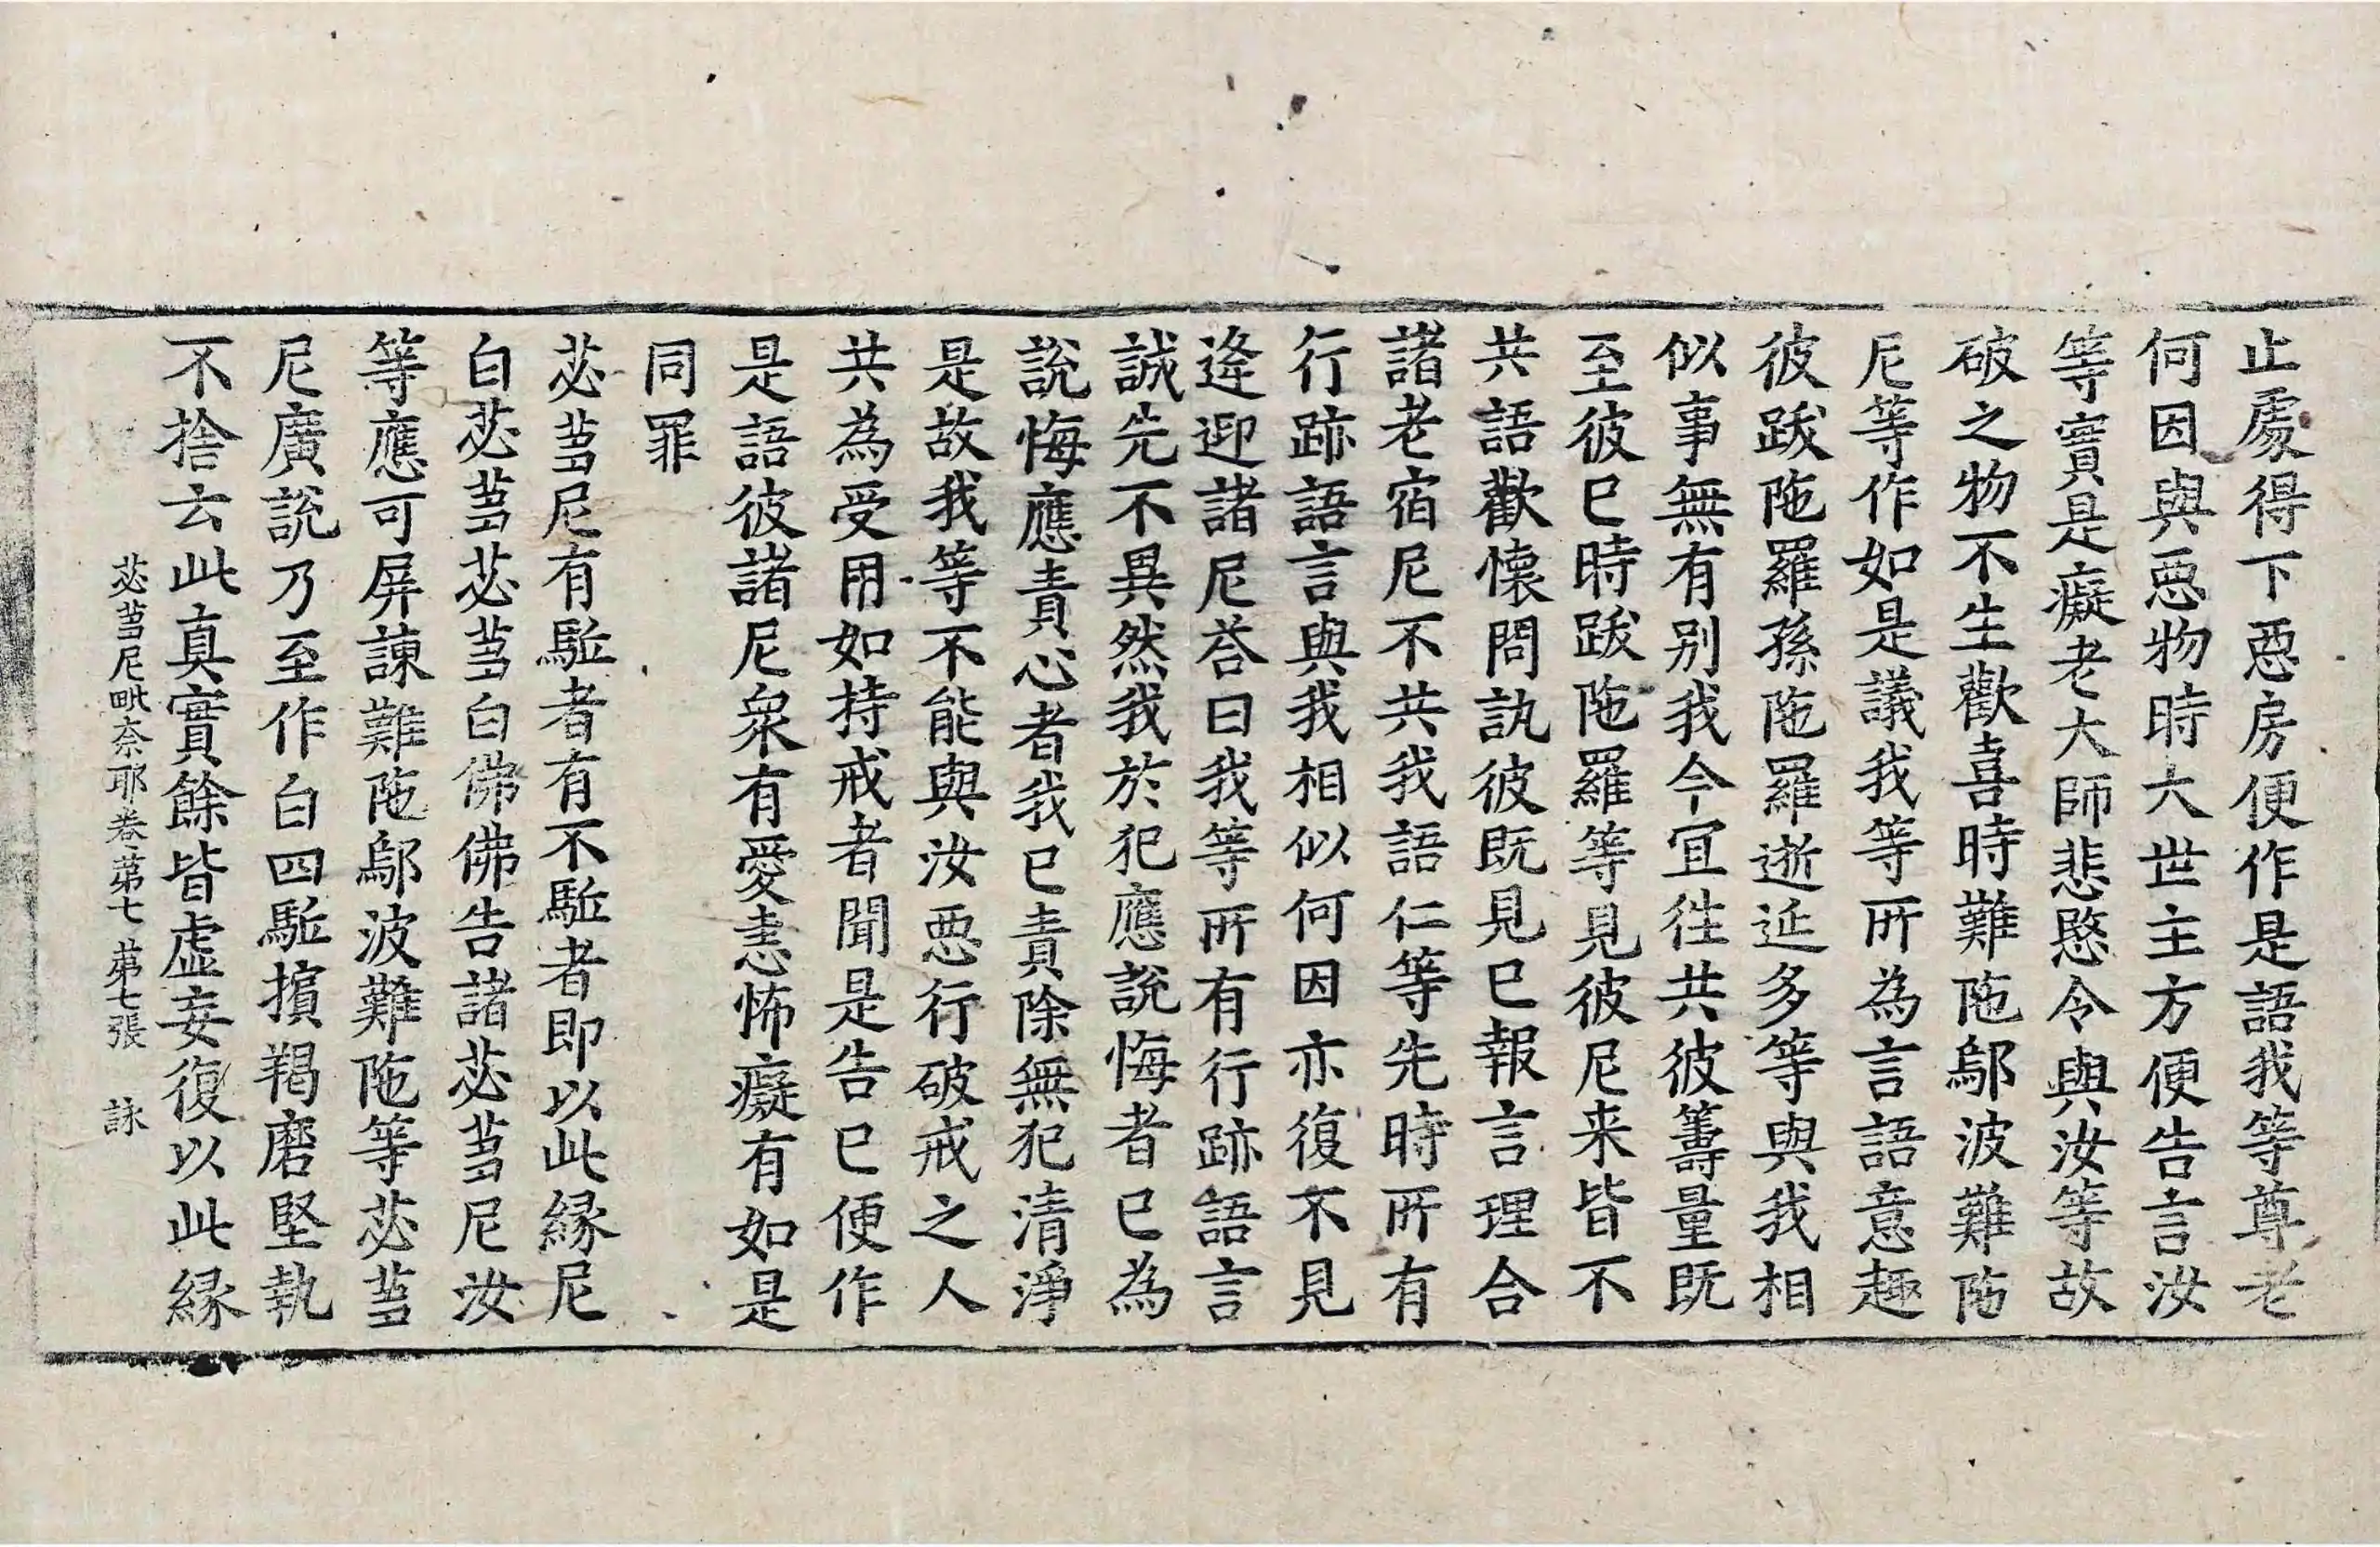 止處得下惡房便作是語我等尊老
何因與惡物時大世主方便告言汝
等實是癡老大師悲愍令與汝等故
破之物不生歡喜時難陁鄔波難陁
尼等作如是議我等所為言語意趣
彼跋陁羅孫陁羅逝延多等與我相
似事無有别我今宜往共彼籌量既
至彼已時跋陁羅等見彼尼来皆不
共語歡懷問訊彼既見已報言理合
諸老宿尼不共我語仁等先時所有
行跡語言與我相似何因亦復不見
逄迎諸尼荅曰我等所有行跡語言
誠先不異然我於犯應說悔者已為
說悔應責心者我已責除無犯清淨
是故我等不能與汝惡行破戒之人
共為受用如持戒者聞是告已便作
是語彼諸尼衆有愛恚怖癡有如是
同罪
苾芻尼有駈者有不駈者即以此緣尼
白苾芻苾芻白佛佛告諸苾芻尼汝
等應可屏諫難陁鄔波難陁等苾芻
尼廣說乃至作白四駈擯羯磨堅執
不捨云此真實餘皆虛妄復以此緣
苾芻尼毗奈耶卷第七 第七張 詠